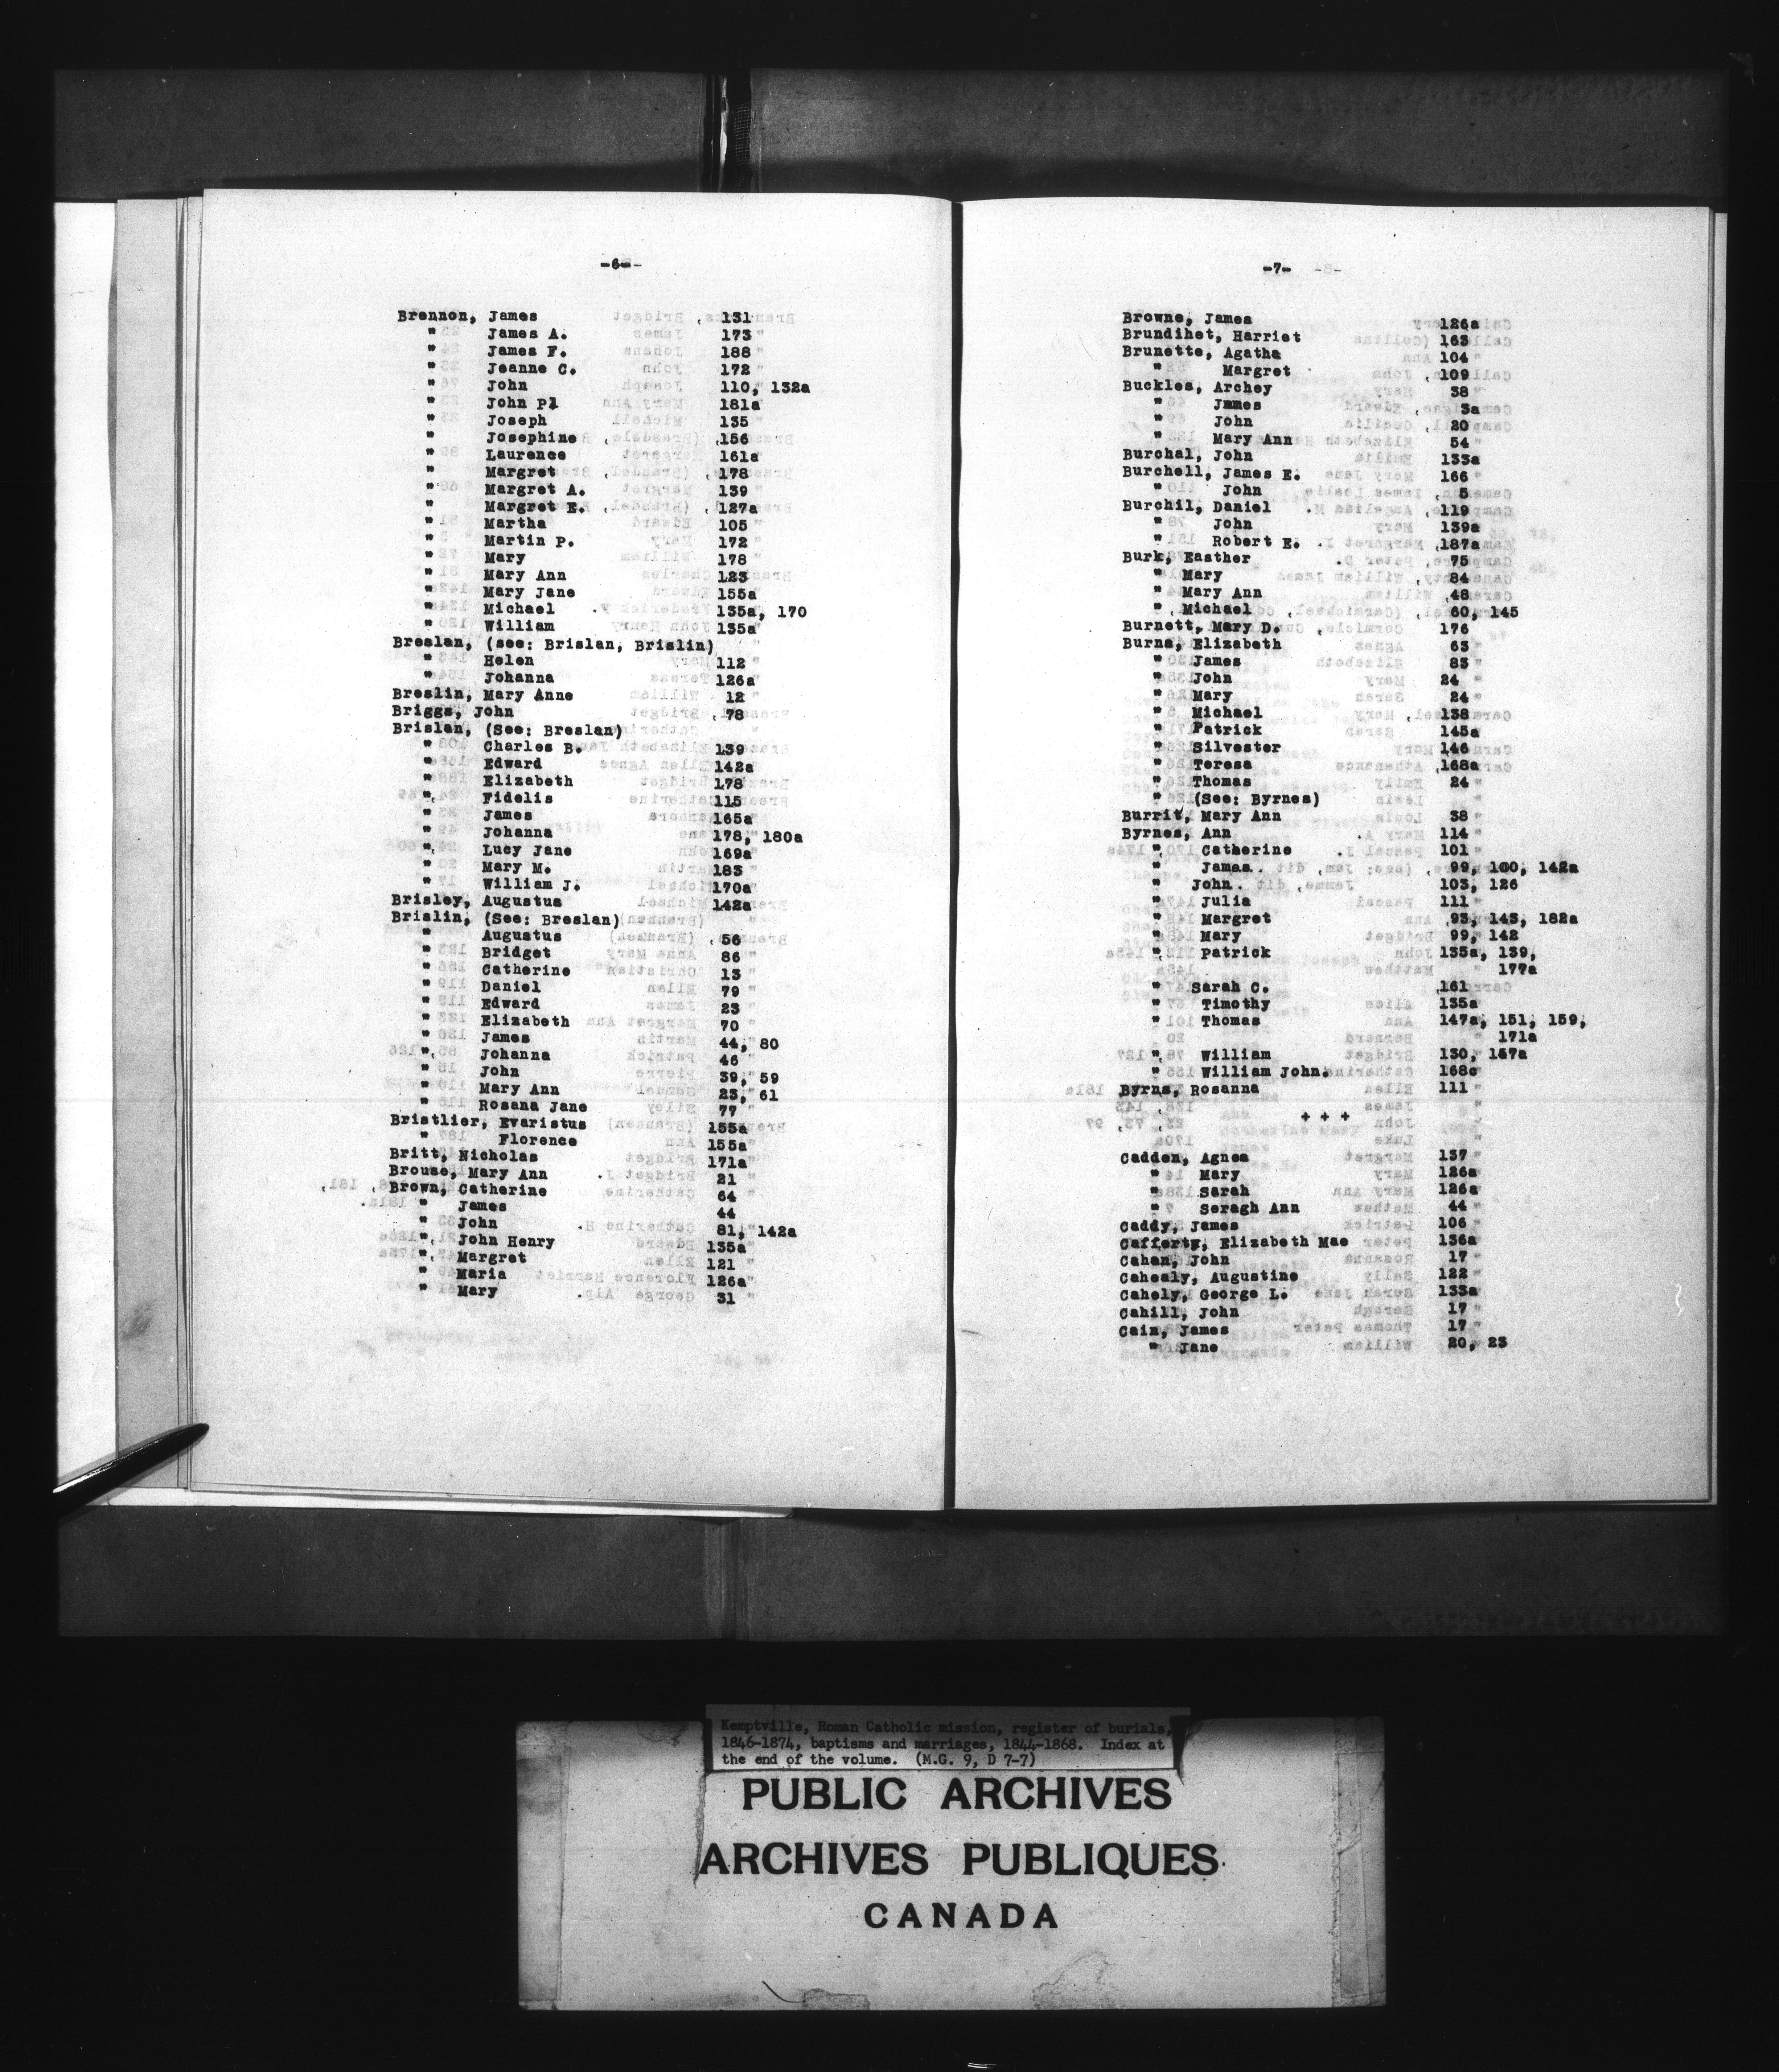 -6-
Brennon, James 131
" James A. 173
" James F. 188
" Jeanne C. 172
" John 110, 132a
" John P. 181a
" Joseph 135
" Josephine 156
" Laurence 161a
" Margret 178
" Margret A. 139
" Margret E. 127a
" Martha 105
" Martin P. 172
" Mary 178
" Mary Ann 123
" Mary Jane 155a
" Michael 135a, 170
" William 135a
Breslan, (see: Brislan, Brislin)
" Helen 112
" Johanna 126a
Breslin, Mary Anne 12
Briggs, John 78
Brislan, (See: Breslan)
" Charles B. 139
" Edward 142a
" Elizabeth 178
" Fidelis 115
" James 165a
" Johanna 178, 180a
" Lucy Jane 169a
" Mary M. 183
" William J. 170a
Brisley, Augustus 142a
Brislin, (See: Breslan)
" Augustus 56
" Bridget 86
" Catherine 13
" Daniel 79
" Edward 23
" Elizabeth 70
" James 44, 80
" Johanna 46
" John 39, 59
" Mary Ann 23, 61
" Rosana Jane 77
Bristlier, Evaristus 155a
" Florence 155a
Britt, Nicholas 171a
Brouse, Mary Ann 21
Brown, Catherine 64
" James 44
" John 81, 142a
" John Henry 135a
" Margret 121
" Maria 126a
" Mary 31
-7-
Browne, James 126a
Brundihet, Harriet 163
Brunette, Agatha 104
" Margret 109
Buckles, Archey 38
" James 3a
" John 20
" Mary Ann 54
Burchal, John 133a
Burchell, James E. 166
" John 5
Burchil, Daniel 119
" John 139a
" Robert E. 187a
Burk, Easther 75
" Mary 84
" Mary Ann 48
" Michael 60, 145
Burnett, Mary D. 176
Burns, Elizabeth 63
" James 83
" John 24
" Mary 24
" Michael 138
" Patrick 145a
" Silvester 146
" Teresa 168a
" Thomas 24
" (See: Byrnes)
Burrit, Mary Ann 38
Byrnes, Ann 114
" Catherine 101
" James 99, 100, 142a
" John 103, 126
" Julia 111
" Margret 93, 143, 182a
" Mary 99, 142
" Patrick 135a, 139,
177a
" Sarah C. 161
" Timothy 135a
" Thomas 147a, 151, 159,
171a
" William 130, 157a
" William John. 168c
Byrns, Rosanna 111
+ + +
Cadden, Agnes 137
" Mary 126a
" Sarah 126a
" Seragh Ann 44
Caddy, James 106
Cafferty, Elizabeth Mae 136a
Cahan, John 17
Cahealy, Augustine 122
Cahely, George L. 133a
Cahill, John 17
Cain, James 17
" Jane 20, 23
Kemptville, Roman Catholic mission, register of burials,
1846-1874, baptisms and marriages, 1844-1868. Index at
the end of the volume. (M.G. 9, D 7-7)
PUBLIC ARCHIVES
ARCHIVES PUBLIQUES
CANADA